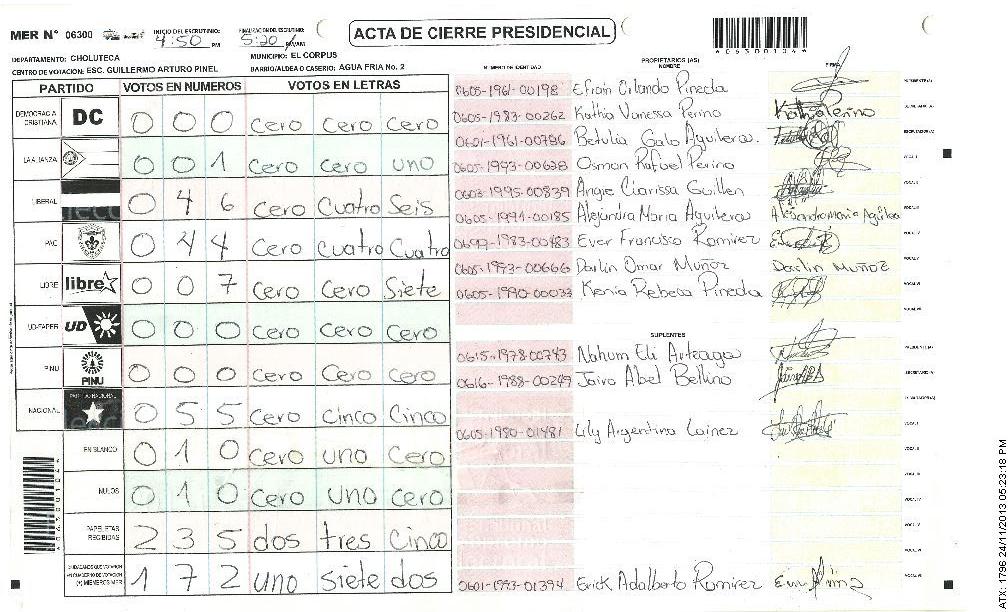 MER N° 06300 INICIO DEL ESCRUTINIO: 4:50 PM FINALIZACION ESCRUTINIO: 5:20 PM/AM ACTA DE CIERRE PRESIDENCIAL
DEPARTAMENTO: CHOLUTECA MUNICIPIO: EL CORPUS
CENTRO DE VOTACION: ESC. GUILLERMO ARTURO PINEL BARRIO/ALDEA O CASERIO: AGUA FRIA No. 2
PARTIDO VOTOS EN NUMEROS VOTOS EN LETRAS
DEMOCRACIA CRISTIANA DC 0 0 0 cero cero cero
LA ALIANZA 0 0 1 cero cero uno
LIBERAL 0 4 6 cero cuatro seis
PAC 0 4 4 cero cuatro cuatro
LIBRE libre 0 0 7 cero cero siete
UD-FAPER UD 0 0 0 cero cero cero
PINU PINU 0 0 0 cero cero cero
NACIONAL PARTIDO NACIONAL 0 5 5 cero cinco cinco
EN BLANCO 0 1 0 cero uno cero
NULOS 0 1 0 cero uno cero
PAPELETAS RECIBIDAS 2 3 5 dos tres cinco
CIUDADANOS QUE VOTARON 1 7 2 uno siete dos
NUMERO DE IDENTIDAD PROPIETARIOS (AS) NOMBRE FIRMA
0605-1961-00198 Efrain Orlando Pineda
0605-1983-00262 Kathia Vanessa Perino Kathia Perino
0601-1961-00786 Betulia Galo Aguilera
0605-1993-00628 Osman Rafael Perino
0603-1995-00839 Angie Clarissa Guillen
0605-1991-00185 Alejandra Maria Aguilera Alejandra Maria Aguilera
0699-1983-00483 Ever Francisco Ramirez
0605-1973-00666 Darlin Omar Muñoz Darlin Muñoz
0605-1990-00033 Kenia Rebeca Pineda
SUPLENTES
0615-1978-00743 Nahum Eli Arteaga
0616-1988-00249 Jairo Abel Bellino
0605-1980-01481 Lily Argentina Lainez
0601-1993-01394 Erick Adalberto Ramirez
ATX 1796 24/11/2013 05:23:18 PM